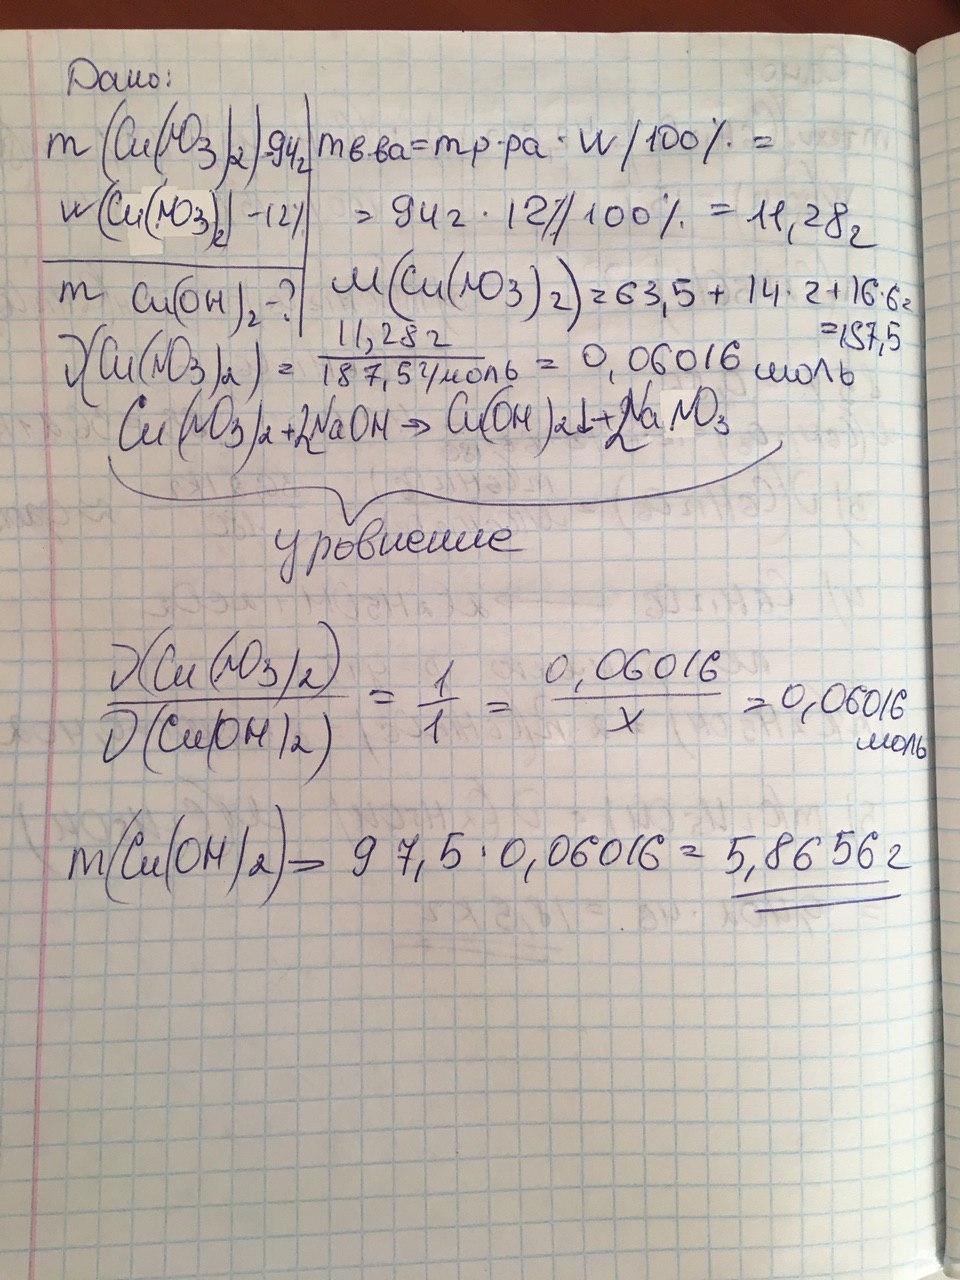 Дано:
m (Cu(NO3)2)-94г mв.ва=mр-ра · W/100% =
w(Cu(NO3)2)-12% = 94г · 12%/100% = 11,28г
m Cu(OH)2-? M(Cu(NO3)2)=63,5 + 14·2+16·6=
=187,5
ν(Cu(NO3)2) = 11,28г / 187,5г/моль = 0,06016 моль
Cu(NO3)2+2NaOH → Cu(OH)2↓+2NaNO3
уровнение
ν(Cu(NO3)2) / ν(Cu(OH)2) = 1/1 = 0,06016 / x = 0,06016
моль
m(Cu(OH)2)= 97,5 · 0,06016 = 5,8656г